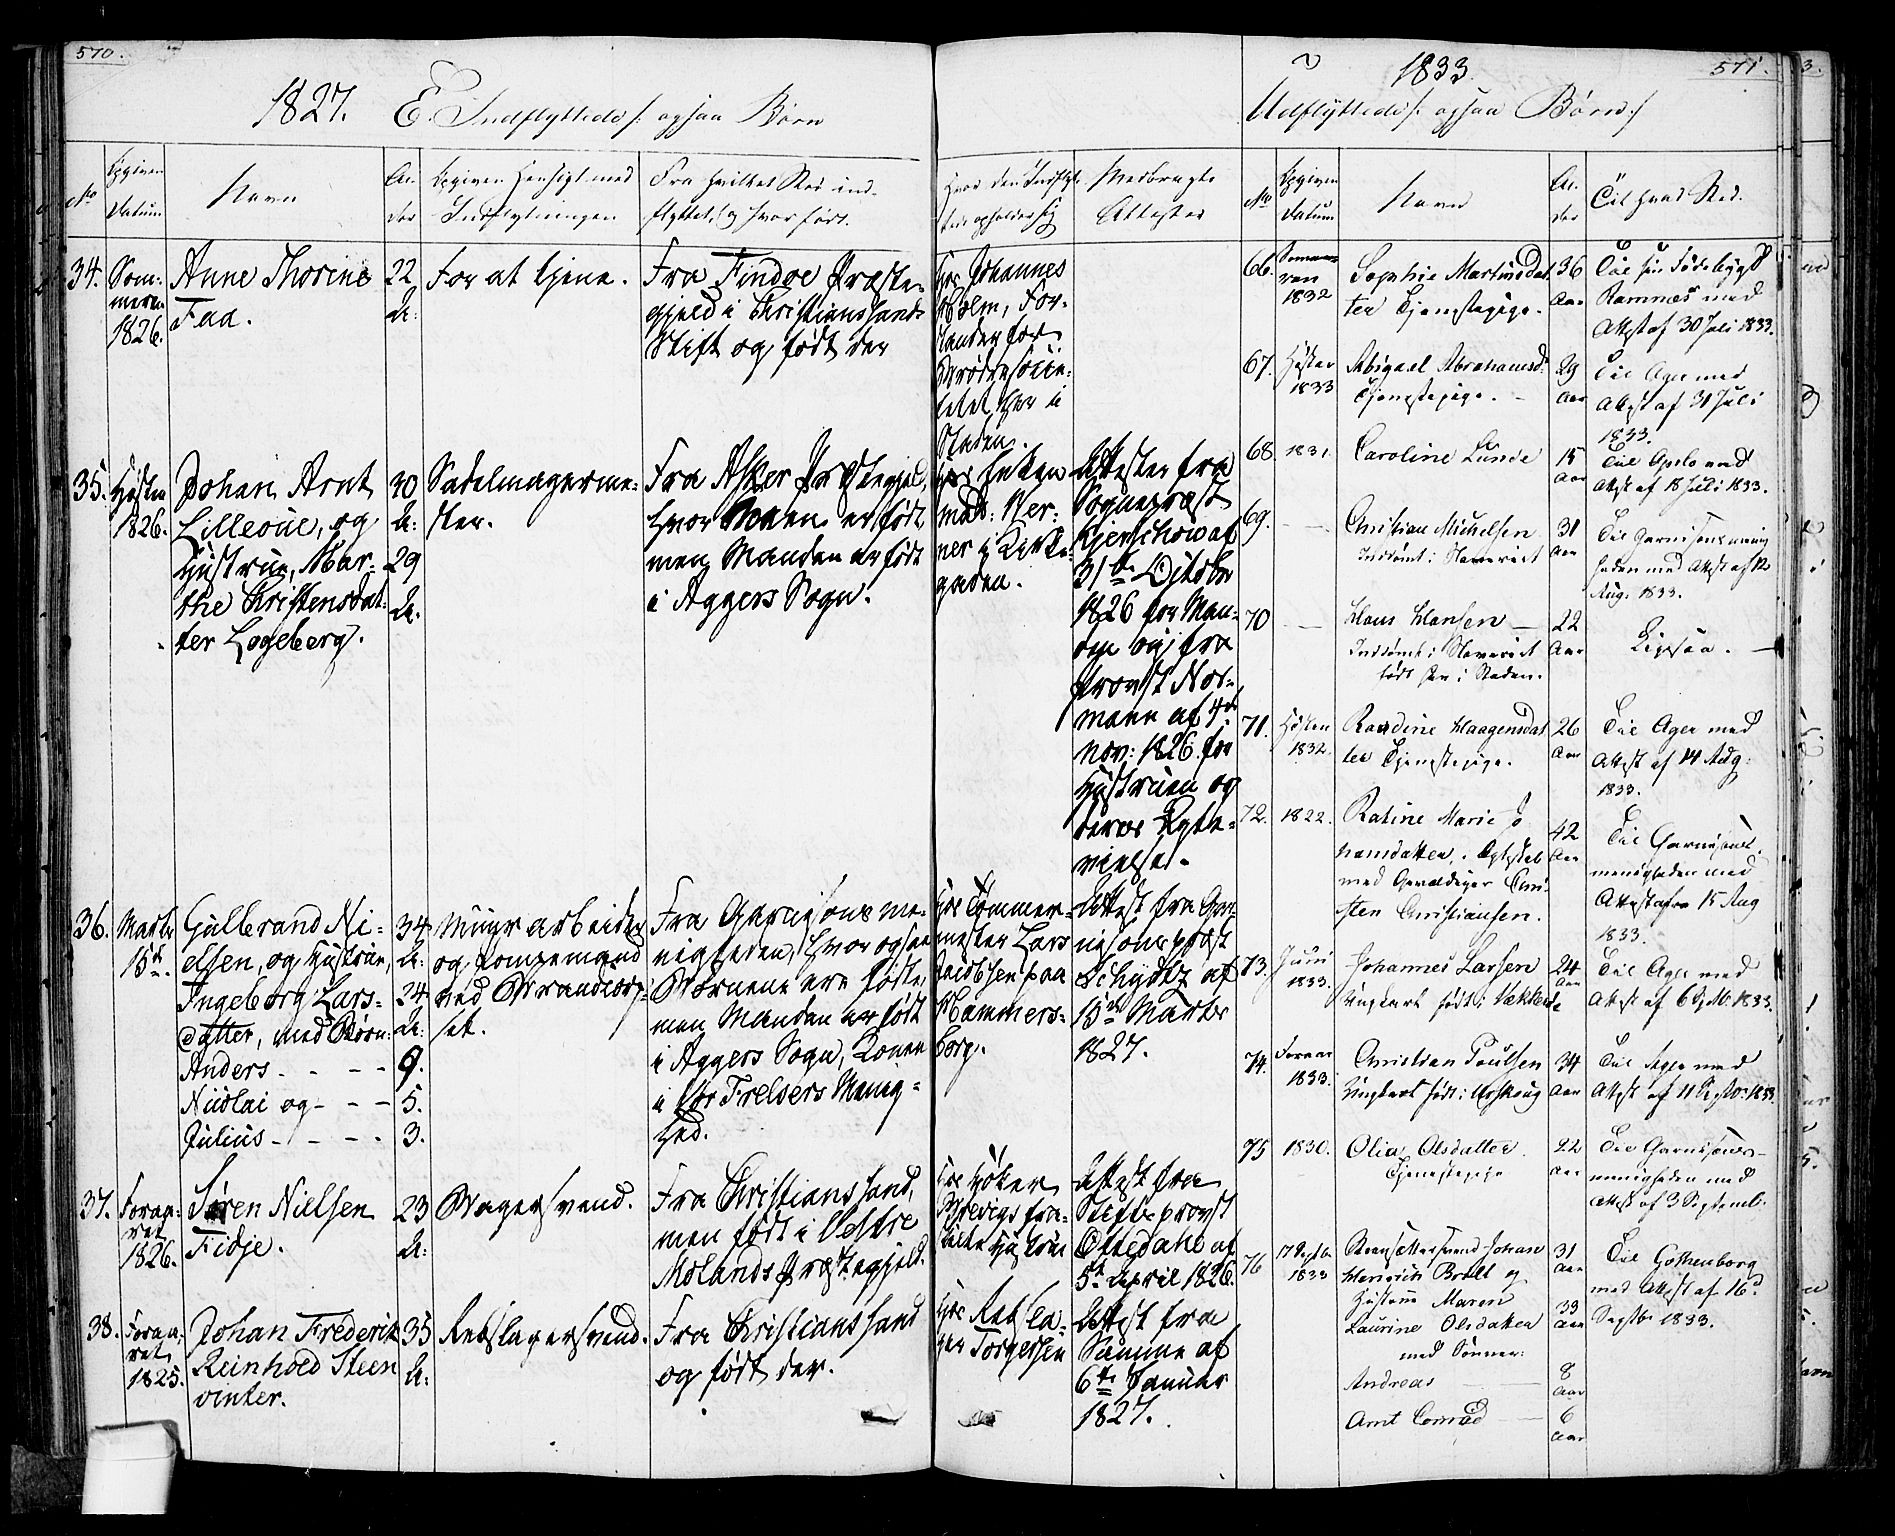 570.
1827. E. Indflyttede /: ogsaa Børn
No
Opgiven Datum
Navn
Al-
der
Opgiven Hensigt med
Indflytningen
Fra hvilket Sted ind-
flyttet, og hvor født.
Hvor den Indflyt-
tede opholder sig
Medbragte
Attester
34.
Som-
meren
1826.
Anne Thorine
Faa.
22
A:
For at tjene.
Fra Findöe Præste-
gjeld i Christianssands
Stift og født der
hos Johannes
Holm, For-
stander for
Brødresocie-
tetet her i
Staden.
35.
Høsten
1826.
Johan Arnt
Lilleoue, og
Hustrue, Mar-
the Christensdat-
ter Logeberg.
30
A:
29
A:
Sadelmagerme-
ster.
Fra Asker Præstegjeld,
hvor Konen er født
men Manden er født
i Aggers Sogn.
hos Enken
Mad: Wer-
ner i Kirke-
gaden.
Attester fra
Sognepræst
Kjerschow af
31te Octobr
1826 for Man-
den og fra
Provst Nor-
mann af 4de
Nov: 1826 for
Hustruen og
deres Egte-
vielse.
36.
Marts
15de.
Gulbrand Ni-
elsen, og Hustrue,
Ingeborg Lars-
datter, med Børn:
Anders - - - -
Nicolai og - - -
Julius - - - -
34
A:
24
A:
9.
5.
3.
Muurarbeider
og Pompemand
ved Brandcorp-
set.
Fra Garnisonsme-
nigheden, hvor ogsaa
Børnene ere fødte,
men Manden er født
i Aggers Sogn, Konen
i Vor Frelsers Menig-
hed.
hos Tømmer-
mester Lars
Jacobsen paa
Hammers-
borg.
Attest fra Gar-
nisonspræst
Schydtz af
13de Marts
1827.
37.
Foraa-
ret
1826.
Søren Nielsen
Fidje.
23
A:
Bagersvend.
Fra Christianssand,
men født i Vestre
Molands Præstegjeld.
hos Høker
Brevigs fra-
skilte Hustrue
Attest fra
Stiftsprovst
Oftedahl af
5te April 1826.
38.
Foraa-
ret
1825.
Johan Frederik
Reinhold Steen
vinter.
35
A:
Rebslagersvend.
Fra Christianssand
og født der.
hos Rebsla-
ger Torgersen
Attest fra
Samme af
6te Januar
1827.
1833.
571.
Udflyttede /: ogsaa Børn :/
No
Opgiven
Datum
Navn
Al-
der
Til hvad Sted.
66.
Sommeren
1832
Sophie Martinsdat-
ter Tjenestepige.
36
Aar
Til sin Fødebygd
Ramnæs med
Attest af 30 Juli 1833.
67.
Høsten
1833
Abigael Abrahamsd:
Tjenestepige. -
29
Aar
Til Ager med
Attest af 31 Juli
1833.
68
1831.
Caroline Lunde
15
Aar
Til Opslo med
Attest af 18 Juli 1833.
69.
Christian Michelsen
Inddømt i Slaveriet
31
Aar
Til Garnisonsmenig
heden med Attest af 12
Aug. 1833.
70
Hans Hansen -
Inddømt i Slaveriet
født her i Staden.
22
Aar
Ligesaa. -
71.
Høsten
1832.
Randine Haagensdat
ter Tjenestepige.
26
Aar
Til Ager med
Attest af 14 Aug:
1833.
72.
1822.
Katine Marie Jo
hansdatter, Egteskab
med Gevaldiger Chri-
sten Christiansen.
42
Aar
Til Garnisons-
menigheden med
Attest af 15 Aug
1833.
73.
Juni
1833.
Johannes Larsen
Ungkarl født i
24
Aar
Til Ager med
Attest af 6 Sept. 1833.
74.
Foraar
1833.
Christian Poulsen
Ungkarl født i Urskoug
34
Aar
Til Ager med
Attest af 11 Septbr: 1833.
75
1830.
Olia Olsdatter.
Tjenestepige
22
Aar
Til Garnisons-
menigheden med
Attest af 3 Septemb.
76
17 Septb.
1833
Johan
Henrich Brolt og
Hustrue Maren
Laurine Olsdatter
med Sønner:
Andreas
Arnt Conrad
31
Aar
33
Aar
8
Aar
6
Aar
Til Gothenborg
med Attest af 16de
Septbr 1833.